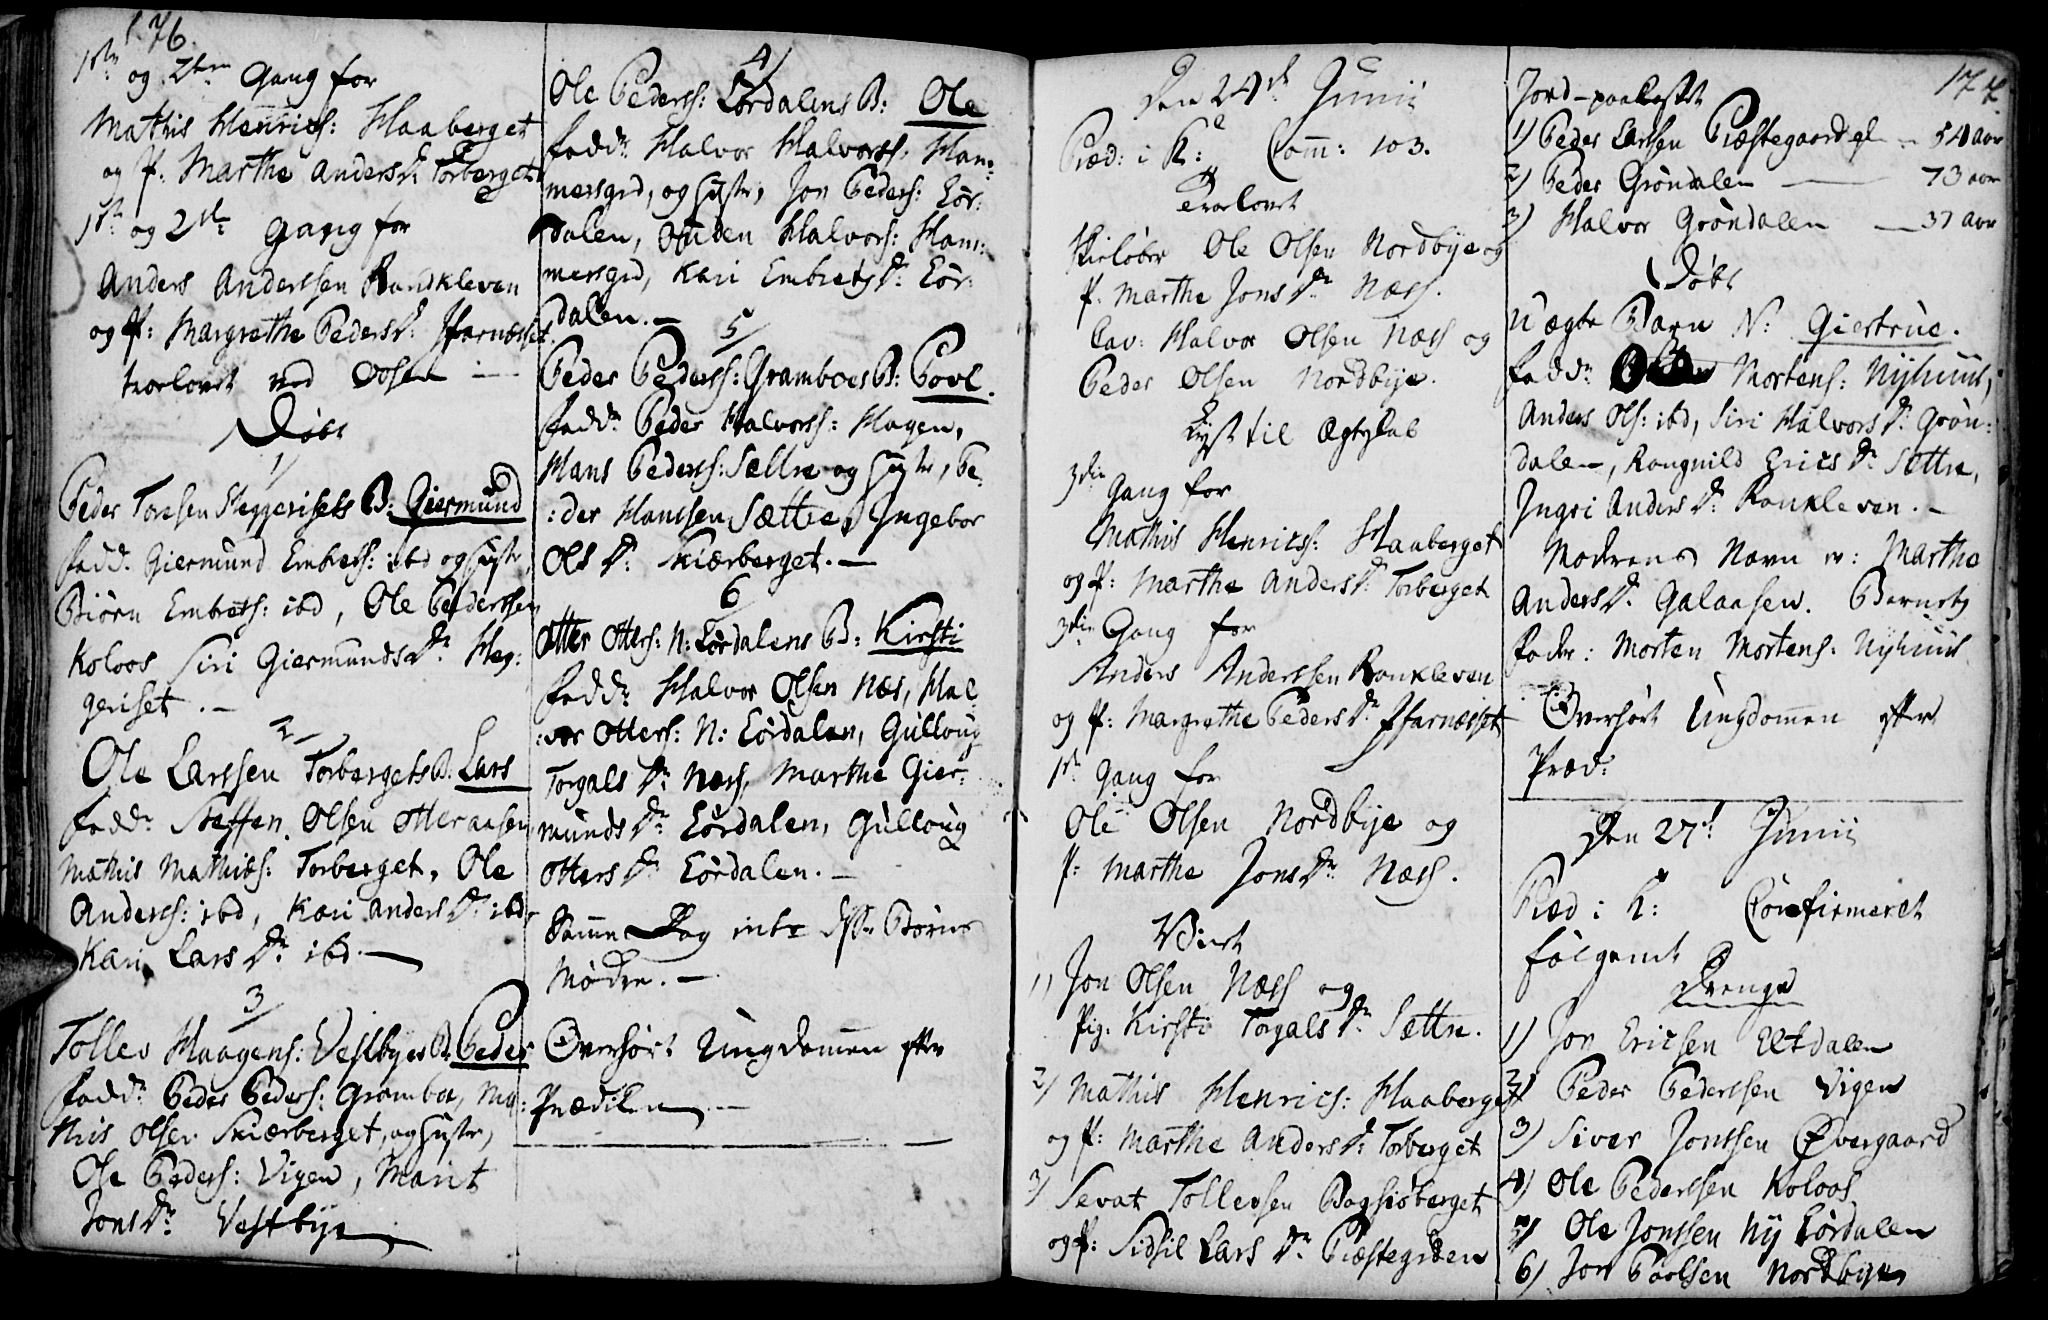 176.
1ste og 2den Gang for
Mathis Henrics: Haaberget
og P: Marthe Anders Dr Torberget
1ste og 2den Gang for
Anders Anderssen Rundkleven
og P: Margrethe Peders Dr
trolovet ved Osen
Døbt
1/
Peder Toresen Heggerisets B: Giermund
fadd: Giermund Embrets: ibd og Hustr,
Biørn Embrets: ibd, Ole Pederssen
Koloos Siri Giermunds Dr Heg:
geriset.
2/
Ole Larssen Torbergets B: Lars
fadd: Steffen Olsen Otteraasen,
Mathis Mathiss: Torberget, Ole
Anderss: ibd, Kari Anders Dr ibd,
Kari Lars Dr ibd.
3/
Tollev Haagens: Vestbyes B: Peder
fadd: Peder Peders: Gramboe, Ma:
this Olsen Skiærberget, og Hustr,
Ole Peders: Vigen, Marit
Jons Dr Vestbye.
4/
Ole Peders: Lørdalens B: Ole
fadd: Halvor Halvorss: Ham:
mersgrd, og Hustr, Jon Peders: Lør:
dalen, Halvors: Ham:
mersgrd, Kari Embrets Dr Lør:
dalen.
5/
Peder Peders: Gramboes B: Povl.
fadd: Peder Halvorss: Hagen,
Hans Peders: Sættre og Hustr, Pe:
:der Hanssen Sættre, Ingebor
Ols Dr Skiærberget.
6/
Otter Otters: N: Lørdalens B: Kirsti
fadd: Halvor Olsen Næs, Hal
:vor Otters: N: Lørdalen, Gulloug
Torgals Dr Næss, Marthe Gier:
munds Dr Lørdalen, Gulloug
Otters Dr Lørdalen.
Samme Dag intr Børns
Mødre.
Overhørt Ungdommen efter
Prædiken.
Den 24de Junii
Præd: i K: Comm: 103.
Trolovet
Skieløber Ole Olsen Nordbye og
P. Marthe Jons Dr Næss.
Cav: Halvor Olsen Næss og
Peder Olsen Nordbye.
Lyst til Ægteskab
3die Gang for
Mathis Henrics: Haaberget
og P: Marthe Anders Dr Torberget
3die Gang for
Anders Anderssen Ronkleven
og P: Margrethe Peders Dr
1ste Gang for
Ole Olsen Nordbye og
P: Marthe Jons Dr Næss.
Viet
1) Jon Olsen Næss og
Pig. Kirsti Torgals Dr Sættre.
2) Mathis Henrics: Haaberget
og P: Marthe Anders Dr Torberget
3) Sevat Tollevsen Bagsiøberget
og P: Sidsil Lars Dr Præstegrden
177
Jord-paakastet
1) Peder Larssen Præstegaardsei 54 aar
2) Peder Grøndalen 73 aar
3) Halvor Grøndalen 37 aar
Døbt
Uægte Barn N: Giertrue.
fadd: Mortens: Nyhuus,
Anders Ols: ibd, Siri Halvors Dr Grøn:
dalen, Rangnild Erics Dr Sættre,
Ingri Anders Dr Ronkleven.
Moderens Navn er: Marthe
Anders Dr Galaasen. Barnets
fader: Morten Mortens: Nyhuus
Overhørt Ungdommen efter
Præd:
Den 27de Junii
Præd: i K: Confirmeret
følgende
Drenge
1) Jon Ericsen Eltdalen
2) Peder Pederssen Vigen
3) Siver Jonssen Øvergaard
4) Ole Pederssen Koloos
5) Ole Jonssen Ny Lørdalen
6) Jon Povlsen Nordbye